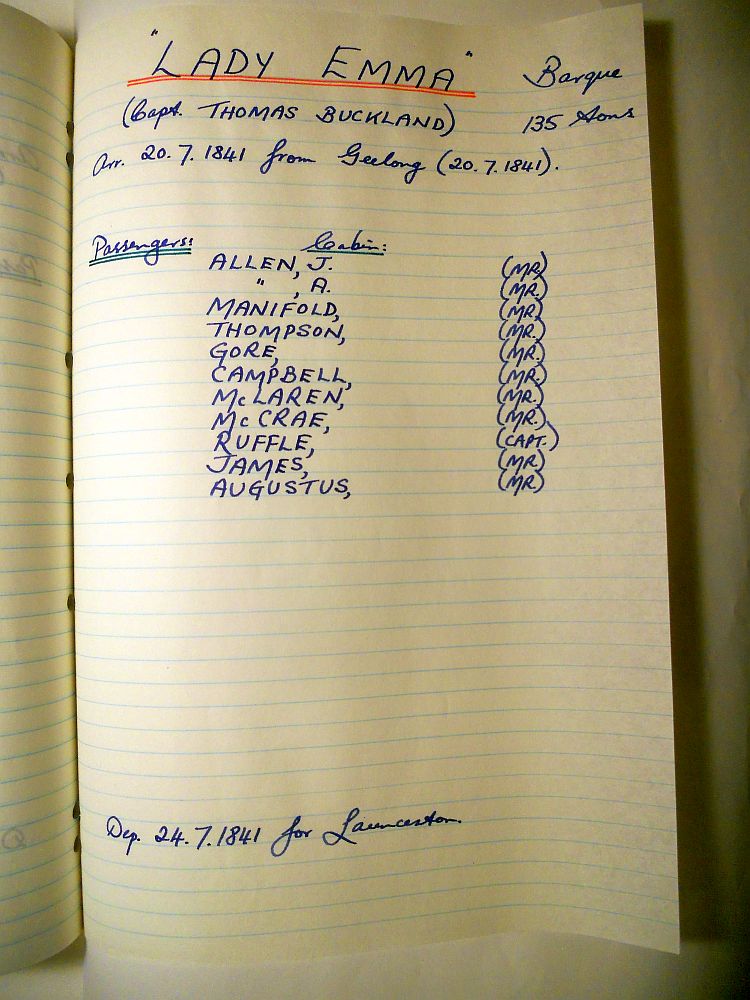 "LADY EMMA" Barque
(Capt. THOMAS BUCKLAND) 135 tons
Arr. 20.7.1841 from Geelong (20.7.1841).
Passengers: Cabin:
ALLEN, J. (MR)
" , A. (MR.)
MANIFOLD, (MR)
THOMPSON, (MR.)
GORE, (MR.)
CAMPBELL, (MR.)
McLAREN, (MR.)
McCRAE, (MR.)
RUFFLE, (CAPT.)
JAMES, (MR)
AUGUSTUS, (MR)
Dep. 24.7.1841 for Launceston.